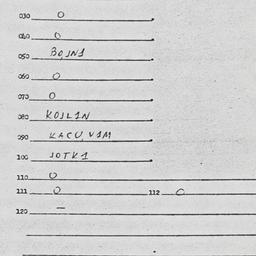 030 0
040 0
050 BOJNI
060 0
070 0
080 KOJLIN
090 KACU, VIM
100 JOTKI
110 0
111 0 112 0
120 —